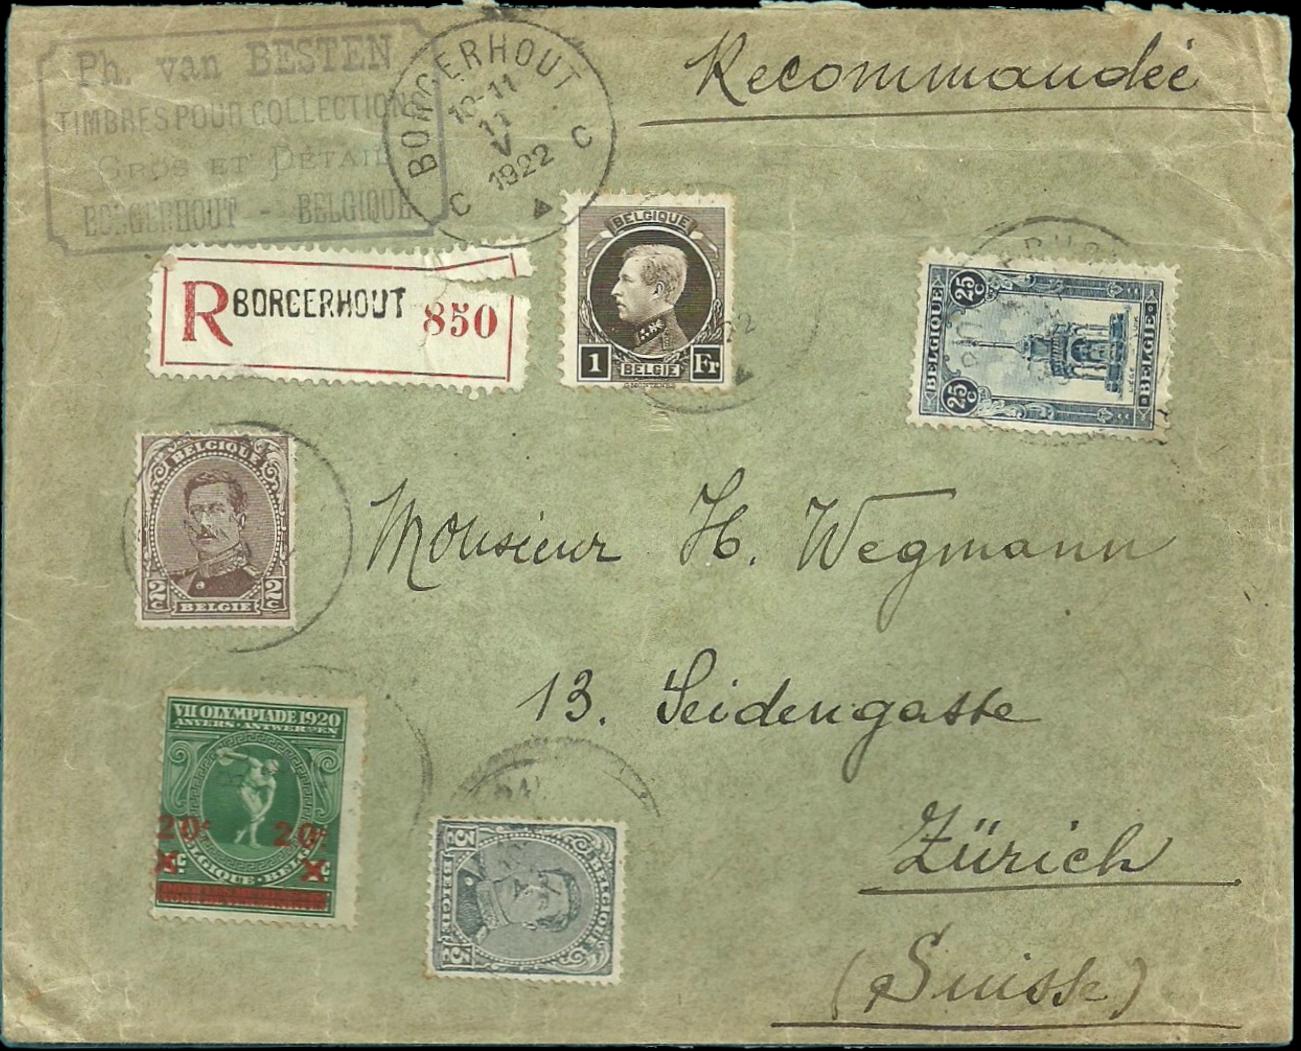 Ph. van BESTEN
TIMBRES POUR COLLECTION
GROS ET DÉTAIL
BORGERHOUT - BELGIQUE
BORGERHOUT
10-11
11
V
1922
C C
Recommandée
R BORGERHOUT 850
BELGIQUE
1 Fr
BELGIË
G. MONTENEZ
BELGIQUE
25 C
25 C
LIÉGE LUIK
BELGIË
BELGIQUE
2 C 2 C
BELGIË
Monsieur H. Wegmann
13. Seidengasse
Zürich
(Suisse)
VII OLYMPIADE 1920
ANVERS - ANTWERPEN
20c 20c
BELGIQUE
5 5
BELGIQUE
BELGIË